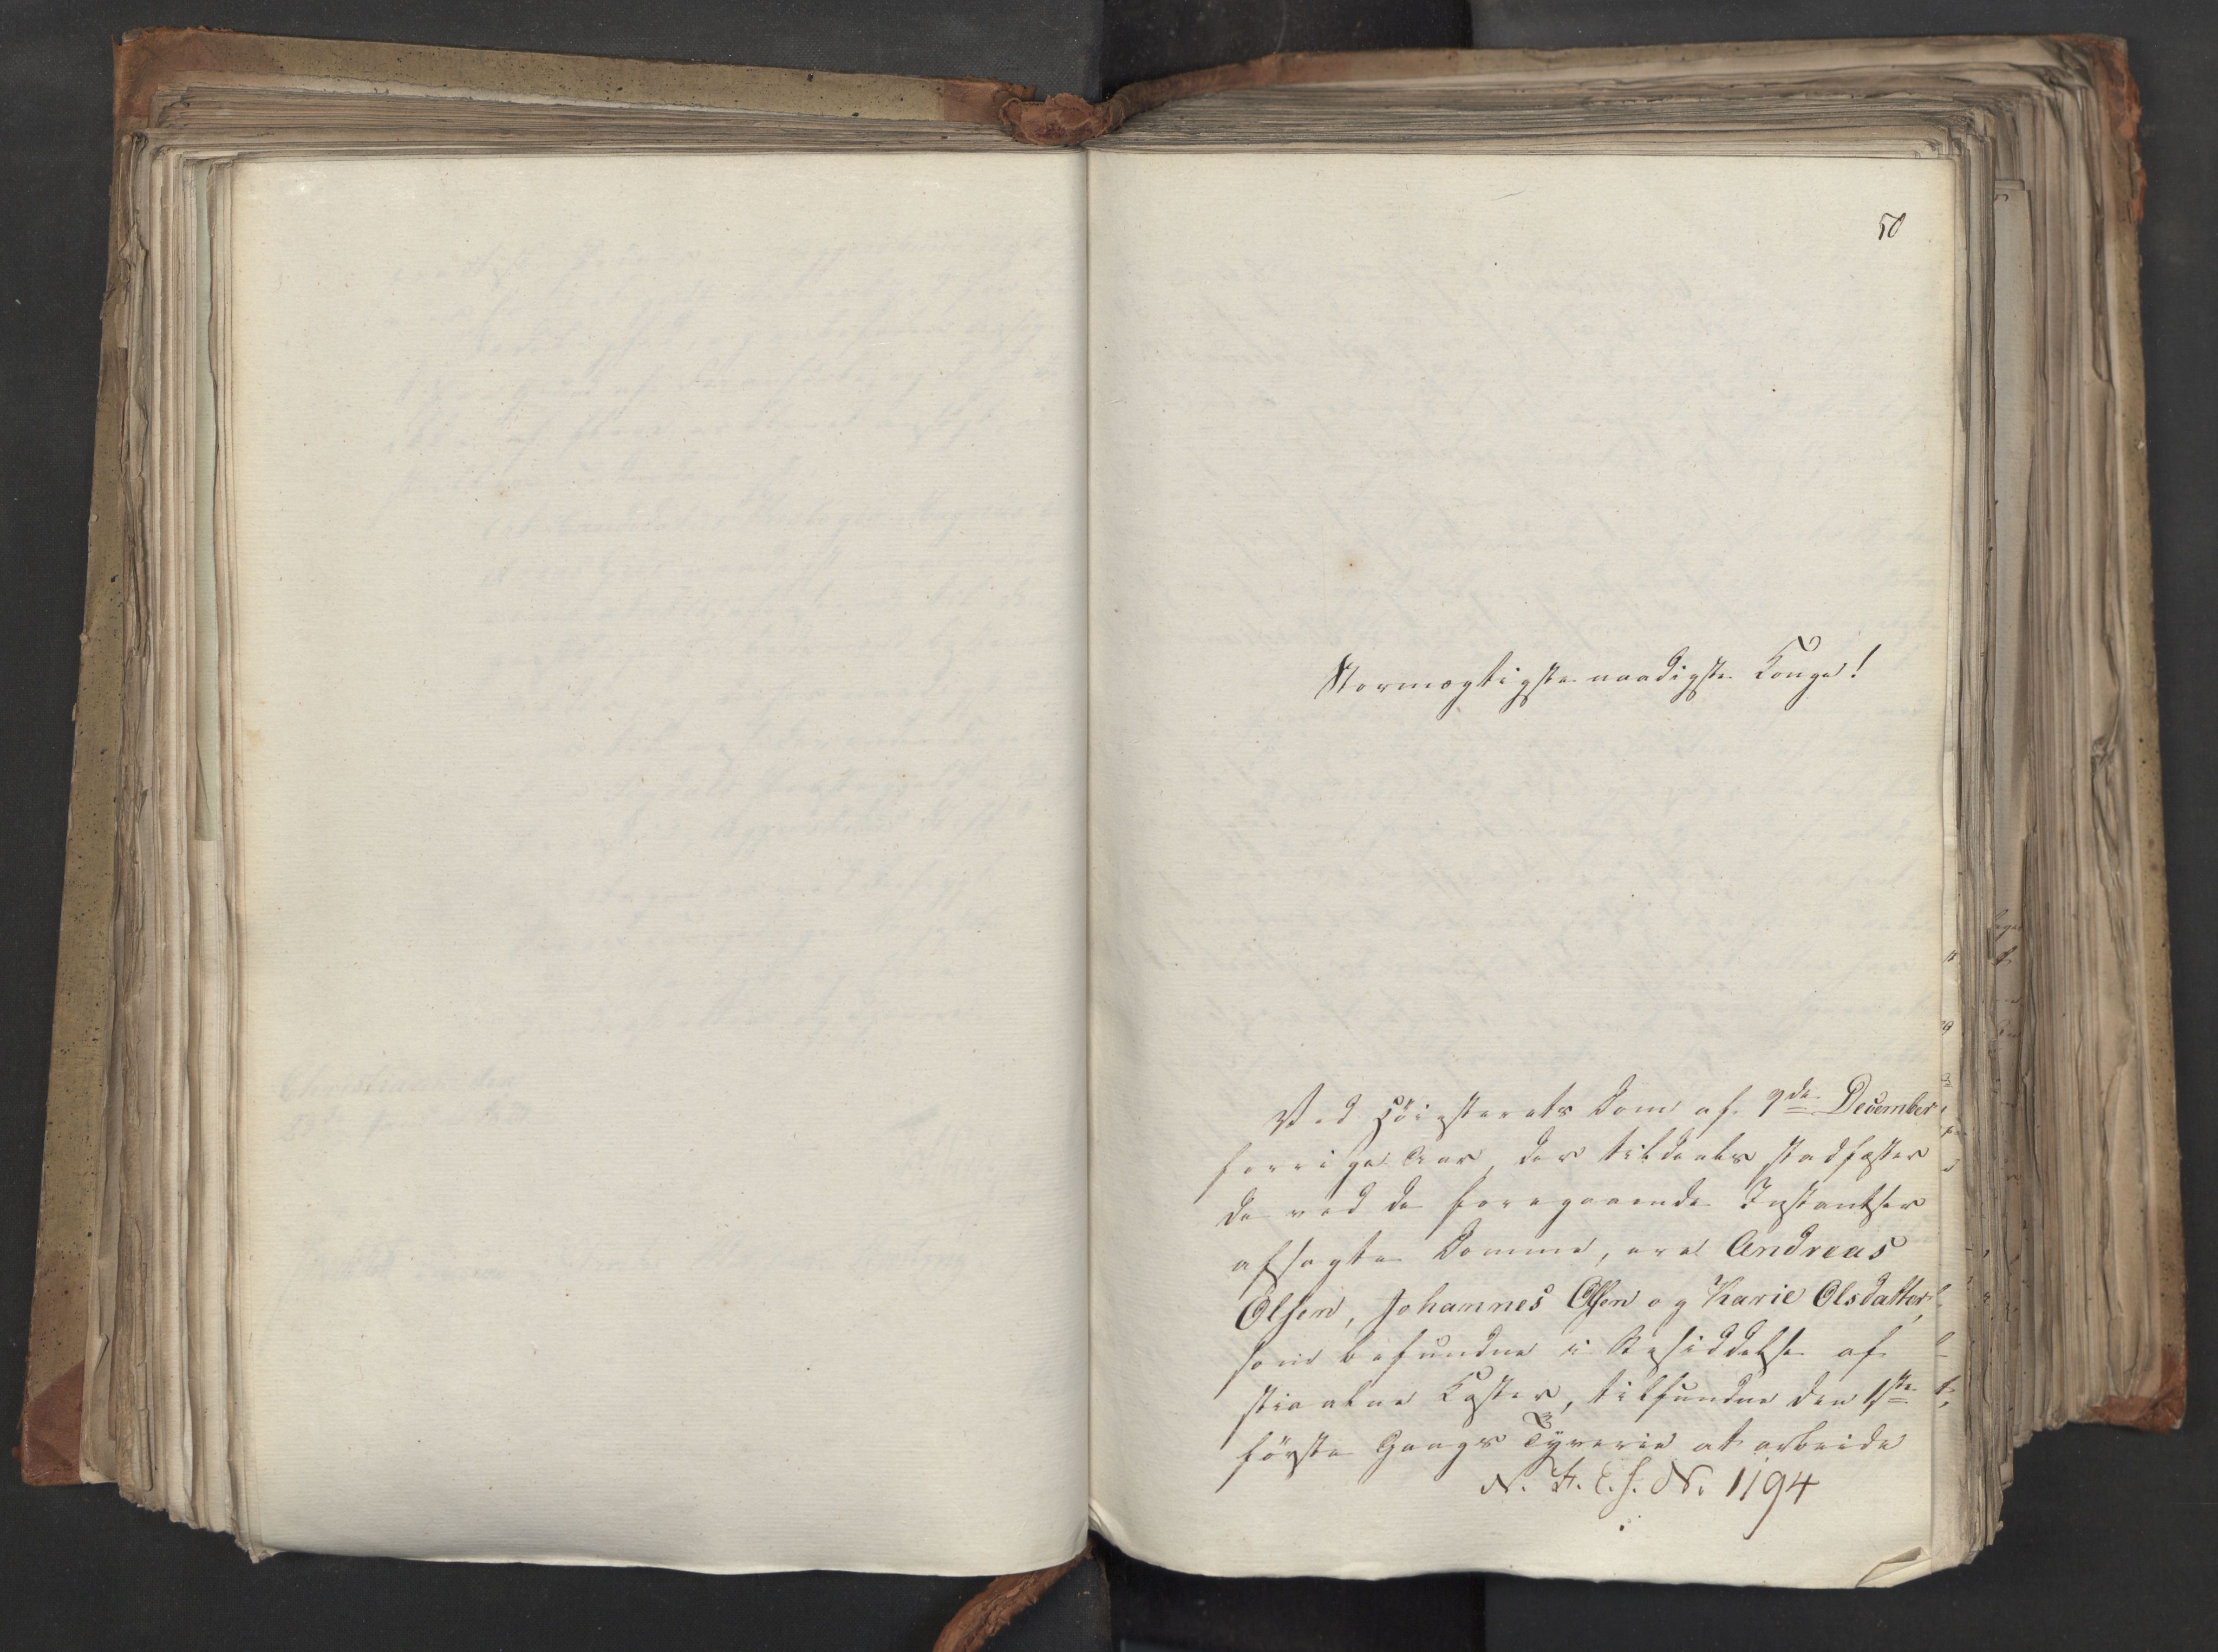 50
Stormægtigste naadigste Konge!
Ved Høiesterets Dom af 9de December
forrige Aar, der tildeels stadfæster
de ved de foregaaende Instantser
afsagte Domme, ere Andreas
Olsen, Johannes Olsen og Karie Olsdatter,
som befundne i Besiddelse af
stiaalne Koster, tilfundne den 1ste
første Gangs Tyverie at arbeide
N. F. E. S. No. 1194